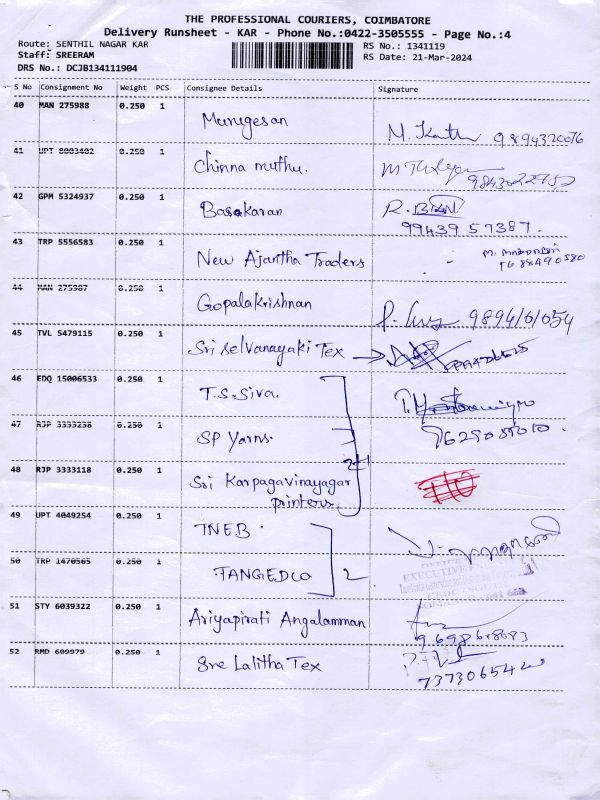 THE PROFESSIONAL COURIERS, COIMBATORE
Delivery Runsheet - KAR - Phone No.:0422-3505555 - Page No.:4
Route: SENTHIL NAGAR KAR
RS No.: 1341119
Staff: SREERAM
RS Date: 21-Mar-2024
DRS No.: DCJB134111904
S No Consignment No Weight PCS Consignee Details Signature
40 MAN 275988 0.250 1 Murugesan
41 UPT 8003402 0.250 1 Chinna muthu.
42 GPM 5324937 0.250 1 Baskaran
99439 57387.
43 TRP 5556583 0.250 1 New Ajantha Traders
44 MAN 275987 0.250 1 Gopalakrishnan
45 TVL 5479115 0.250 1 Sri Selvanayaki Tex
46 EDQ 15006533 0.250 1 T.S. Siva.
47 RJP 3333238 0.250 1 SP Yarns.
48 RJP 3333118 0.250 1 Sri Karpagavinayagar
printers
49 UPT 4049254 0.250 1 TNEB
50 TRP 1470565 0.250 1 TANGEDCO 2
EXECUTIVE
51 STY 6039322 0.250 1 Ariyapirati Angalamman
52 RMD 609979 0.250 1 Sre Lalitha Tex